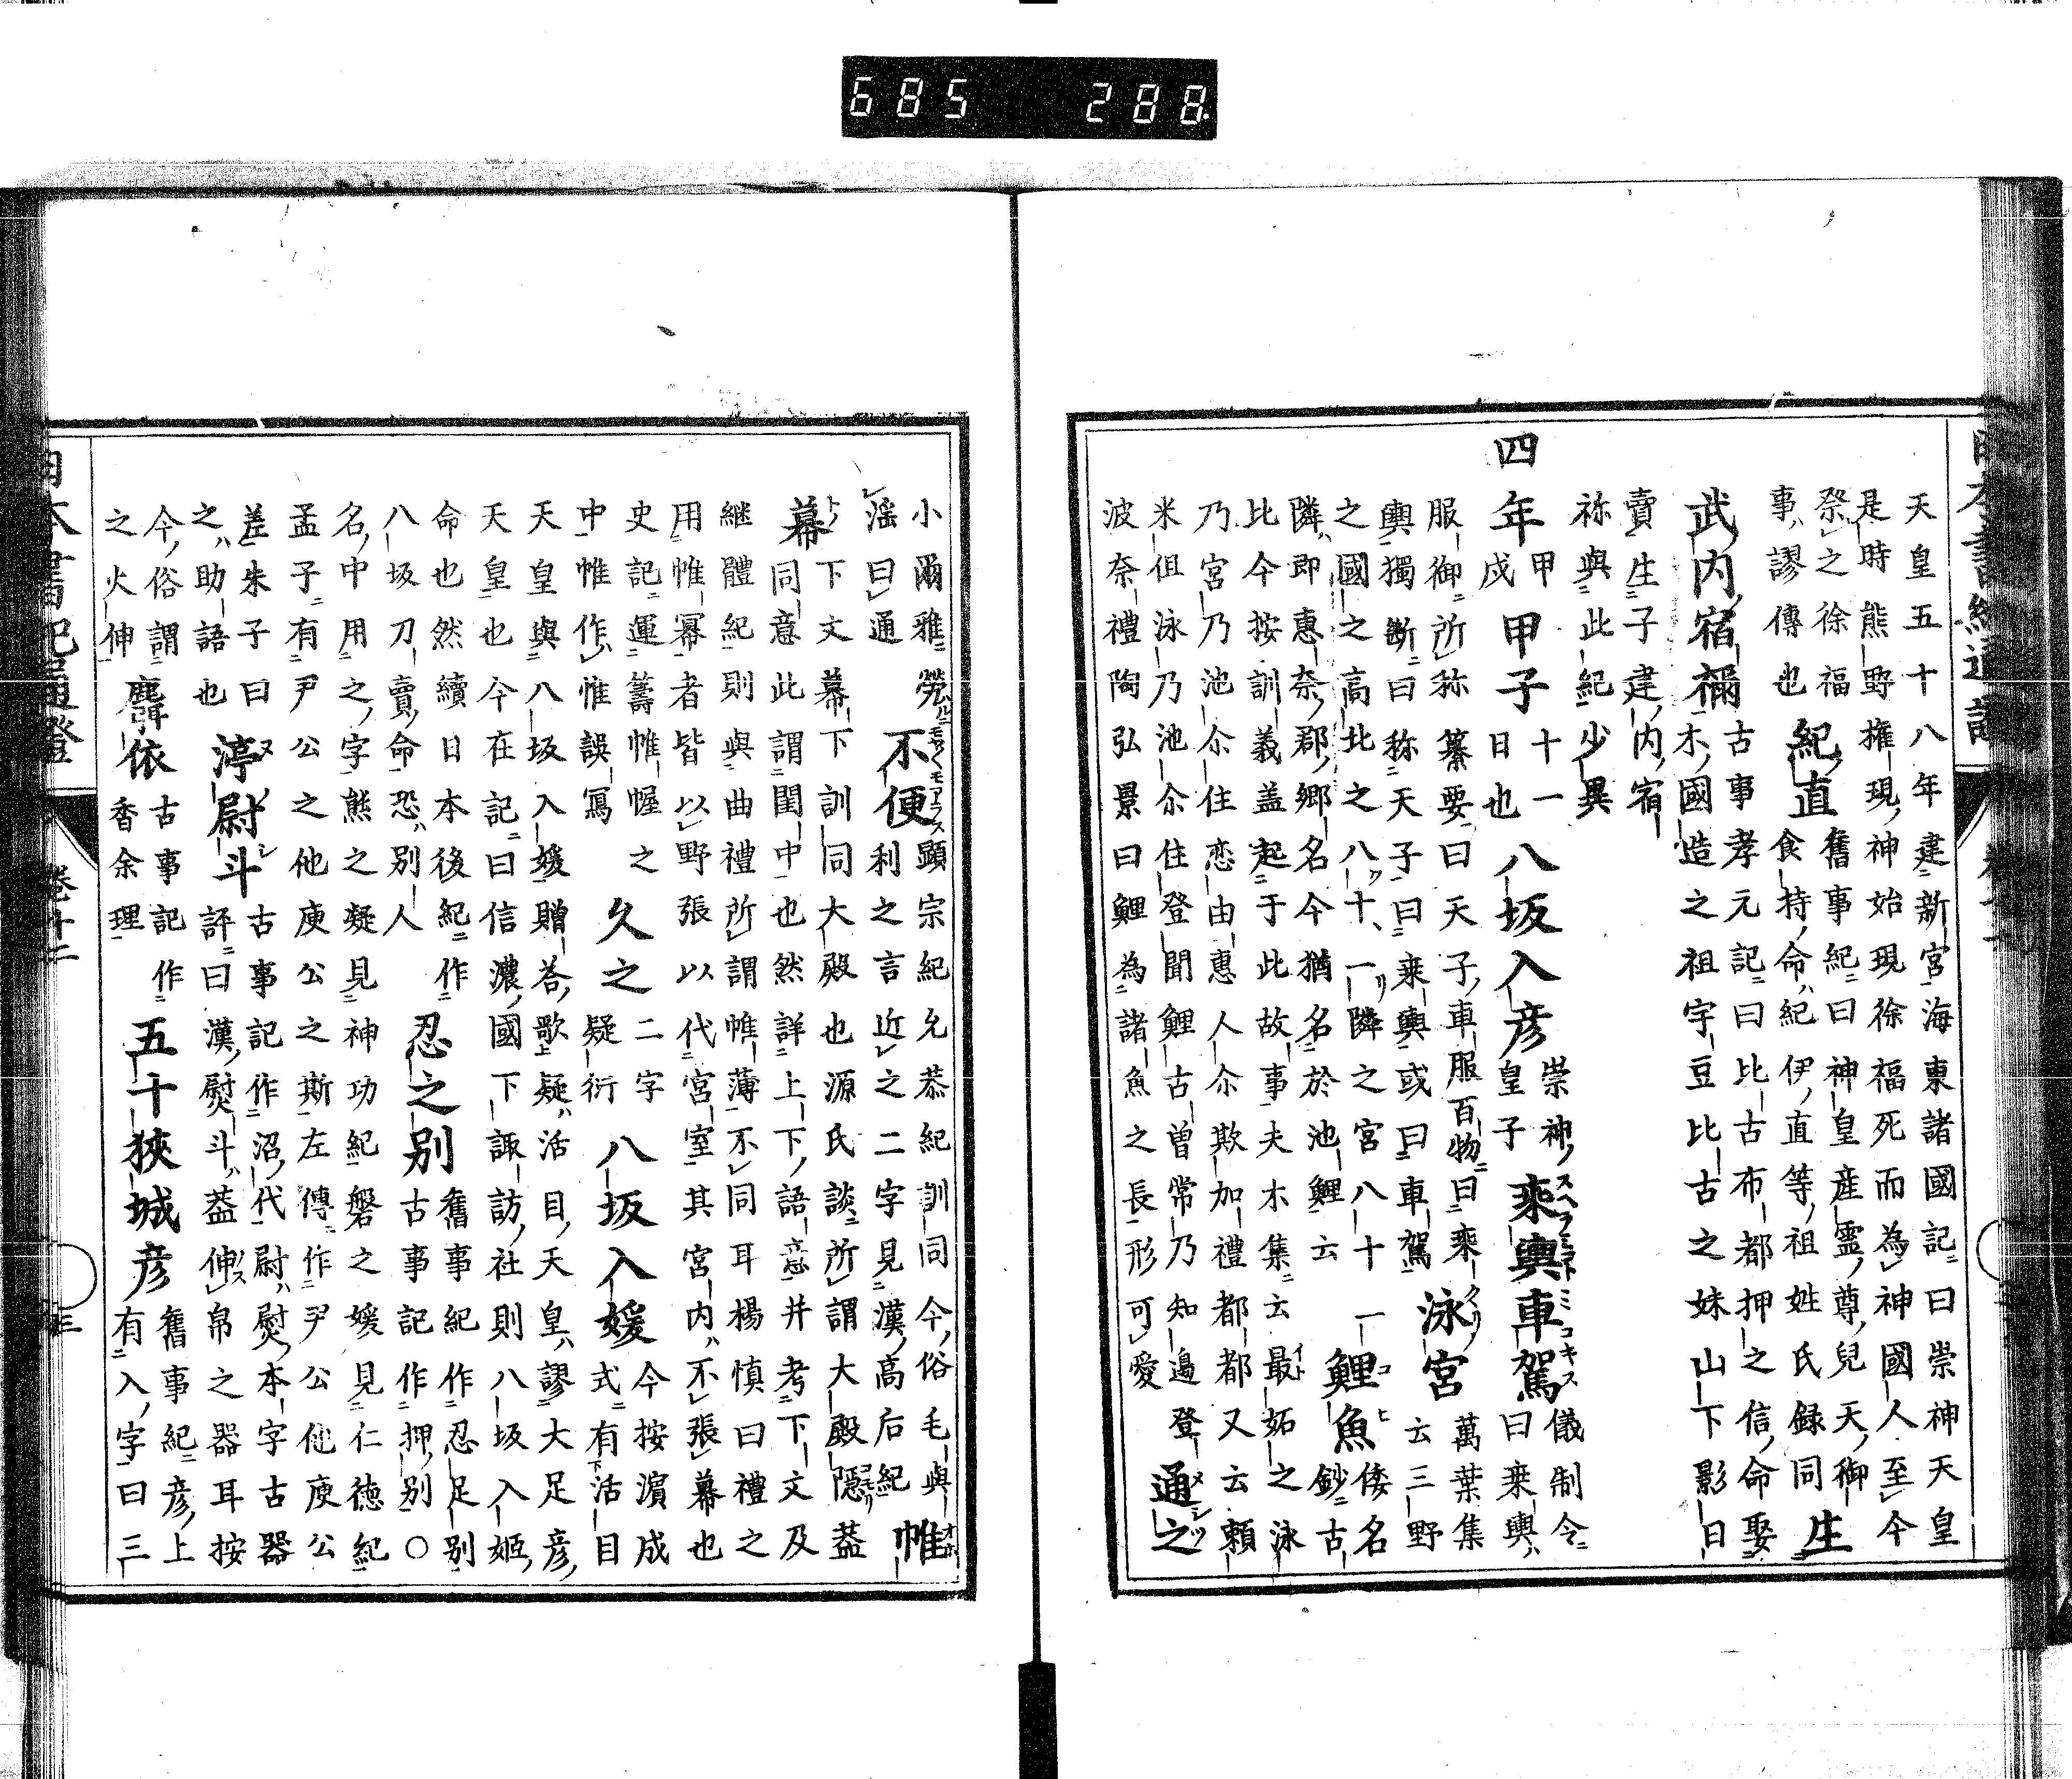 天皇五十八年建新宮海東諸國記曰崇神天皇
是時熊野權現神始現徐福死而為神國人至今
祭之徐福
事謬傳也
紀直
舊事紀曰神皇産霊尊兒天御
食持命紀伊直等祖姓氏録同
生
武内宿禰
古事孝元記曰比古布都押之信命娶
木國造之祖宇豆比古之妹山下影日
賣生子建内宿
祢與此紀少異
四年
甲
戌
甲子
十一
日也
八坂入彦
崇神
皇子
乗輿車駕
儀制令
曰乗輿
服御所称纂要曰天子車服百物曰乗
輿獨斷曰称天子曰乗輿或曰車駕
泳宮
萬葉集
云三野
之國之高北之八十一隣之宮八十一
隣即惠奈郡郷名今猶名於池鯉云
鯉魚
倭名
鈔古
比今按訓義盖起于此故事夫木集云最妬之泳
乃宮乃池尒住恋由惠人尒欺加禮都都又云頼
米但泳乃池尒住登聞鯉古曽常乃知邉登
波奈禮陶弘景曰鯉為諸魚之長形可愛
通之
小爾雅勞
謡曰通
不便
顕宗紀允恭紀訓同今俗毛與
利之言近之二字見漢高后紀
帷
幕
下文幕下訓同大殿也源氏談所謂大殿隠葢
同意此謂閨中也然詳上下語意并考下文及
継體紀則與曲禮所謂帷薄不同耳楊慎曰禮之
用帷冪者皆以野張以代宮室其宮内不張幕也
史記運籌帷幄之
中帷作惟誤冩
久之
二字
疑衍
八坂入媛
今按濵成
式有活目
天皇與八坂入媛贈荅歌疑活目天皇謬大足彦
天皇也今在記曰信濃國下諏訪社則八坂入姫
命也然續日本後紀作
八坂刀賣命恐別人
忍之別
舊事紀作忍足別
古事記作押別〇
名中用之字熊之凝見神功紀磐之媛見仁徳紀
孟子有尹公之他庾公之斯左傳作尹公他庾公
差朱子曰
之助語也
渟尉斗
古事記作沼代尉熨本字古器
評曰漢熨斗葢伸帛之器耳按
今俗謂
之火伸
麛依
古事記作
香余理
五十狹城彦
舊事紀彦上
有入字曰三
685 288